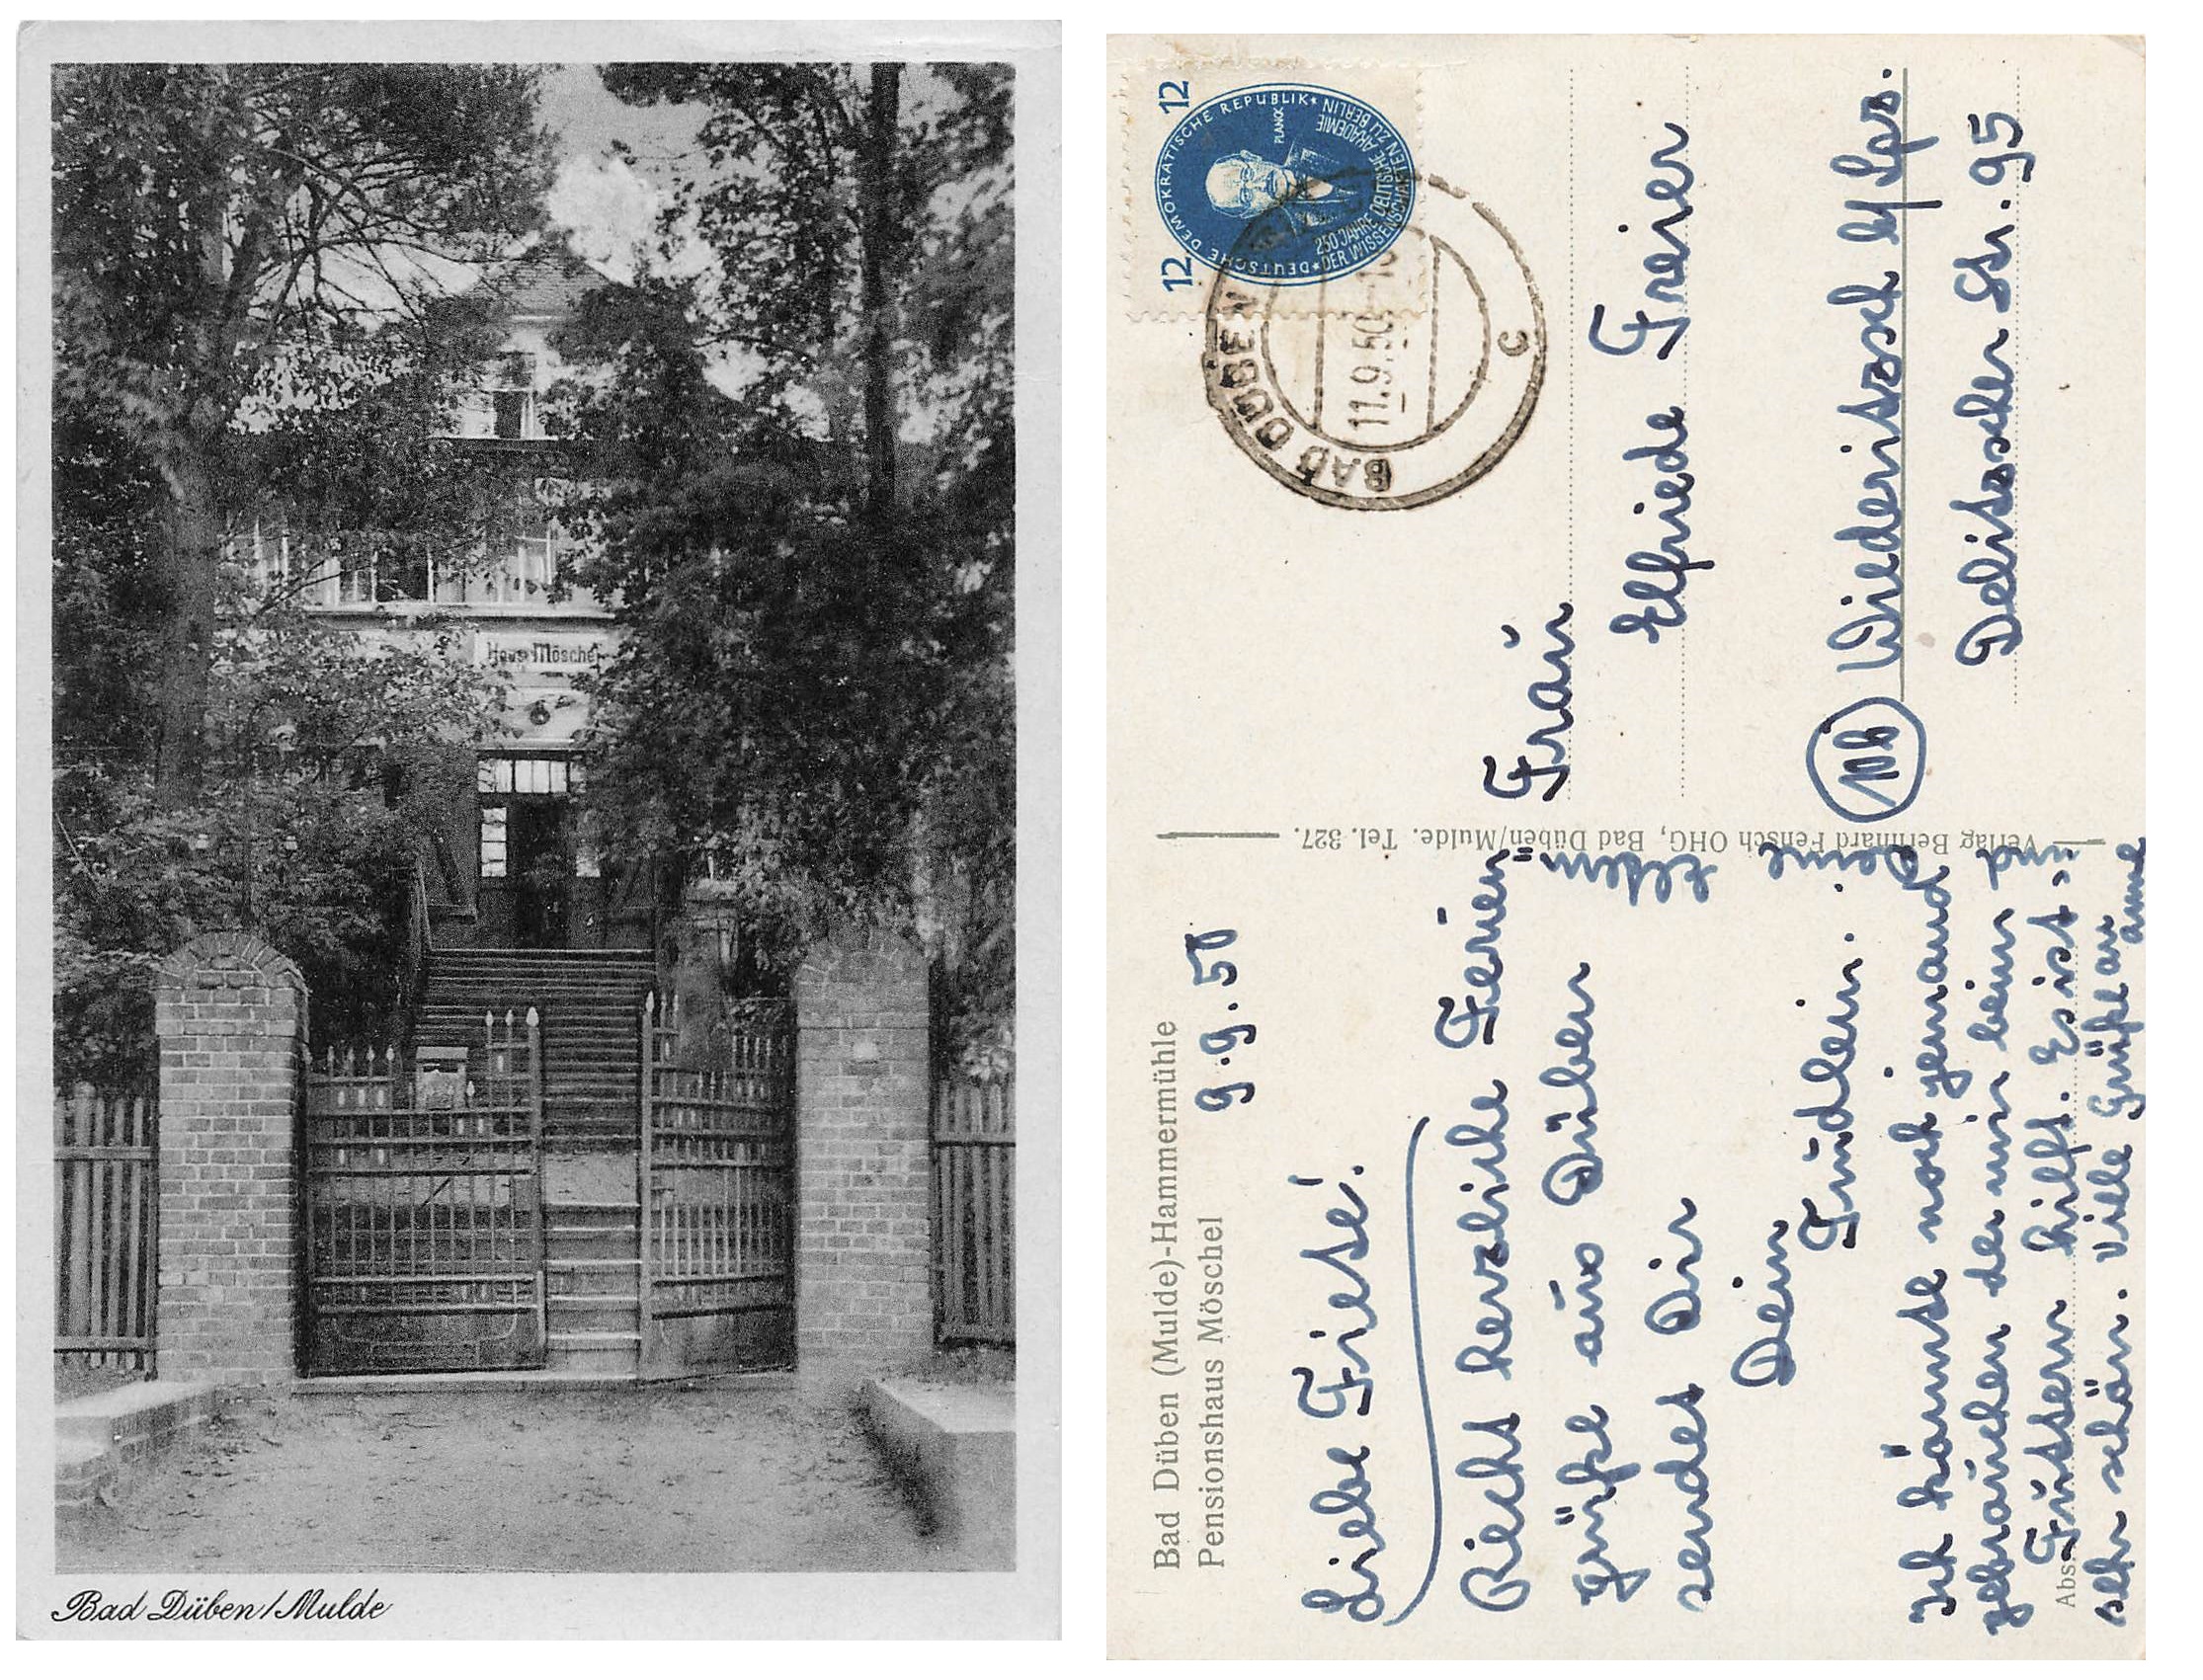 Haus Möschel
Bad Düben/Mulde
Bad Düben (Mulde)-Hammermühle
Pensionshaus Möschel
9.9.50
Liebe Friese!
Riecht herzliche Ferien
grüße aus Düben
sendet Dir
Dein
Trudlein.
Ich könnte noch jemand
gebrauchen der mir beim
Futtern hilft. Es ist
sehr schön. Viele Grüße an
Deine
Abs.
Verlag Bernhard Fensch OHG, Bad Düben/Mulde. Tel. 327.
12 12
DEUTSCHE DEMOKRATISCHE REPUBLIK
PLANCK
250 JAHRE DEUTSCHE AKADEMIE
DER WISSENSCHAFTEN ZU BERLIN
BAD DÜBEN
11.9.50
c
Frau
Elfriede Freier
Wiederitzsch b/Lpz.
Delitzscher Str. 95